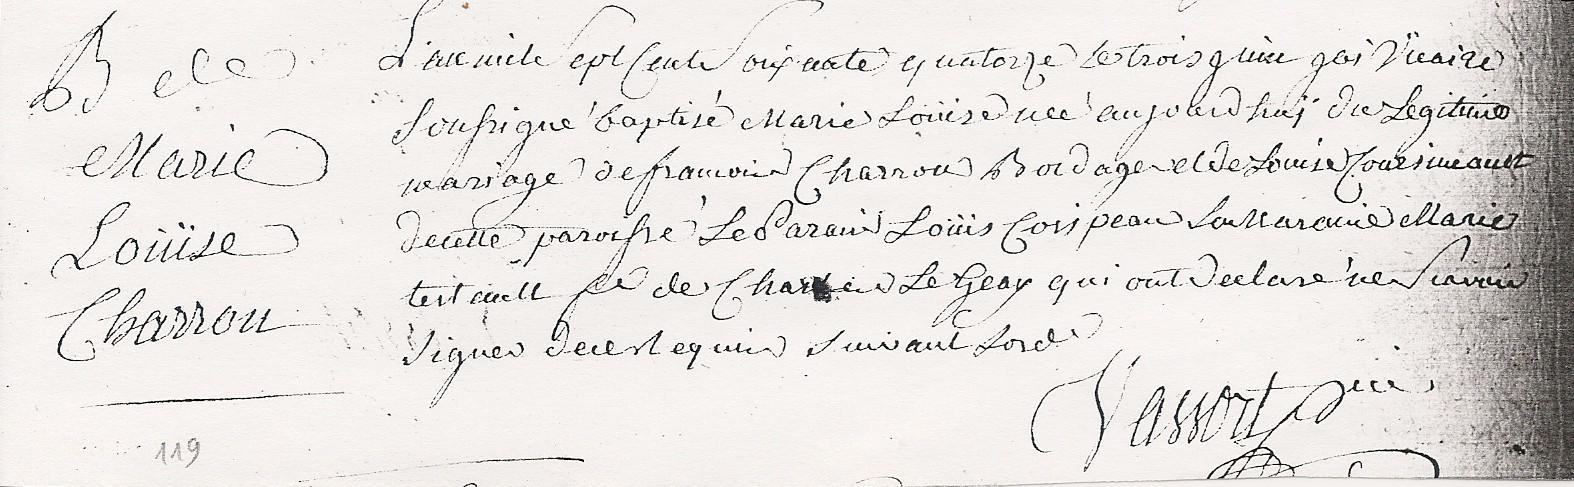 B de
Marie
Loüise
Charron
119
L'an mile sept Cent Soixante quatorze le trois juin j'ai Vicaire
Soussigné baptisé Marie Loüise née aujourd'huy du Legitime
mariage de francois Charron Bordager et de Louise Coursineault
de cette paroisse Le Parain Loüis Crispeau La Maraine Marie
testault fe de Le Geay qui ont declaré ne Scavoir
Signer de ce requis Suivant Lord
Vassort vic